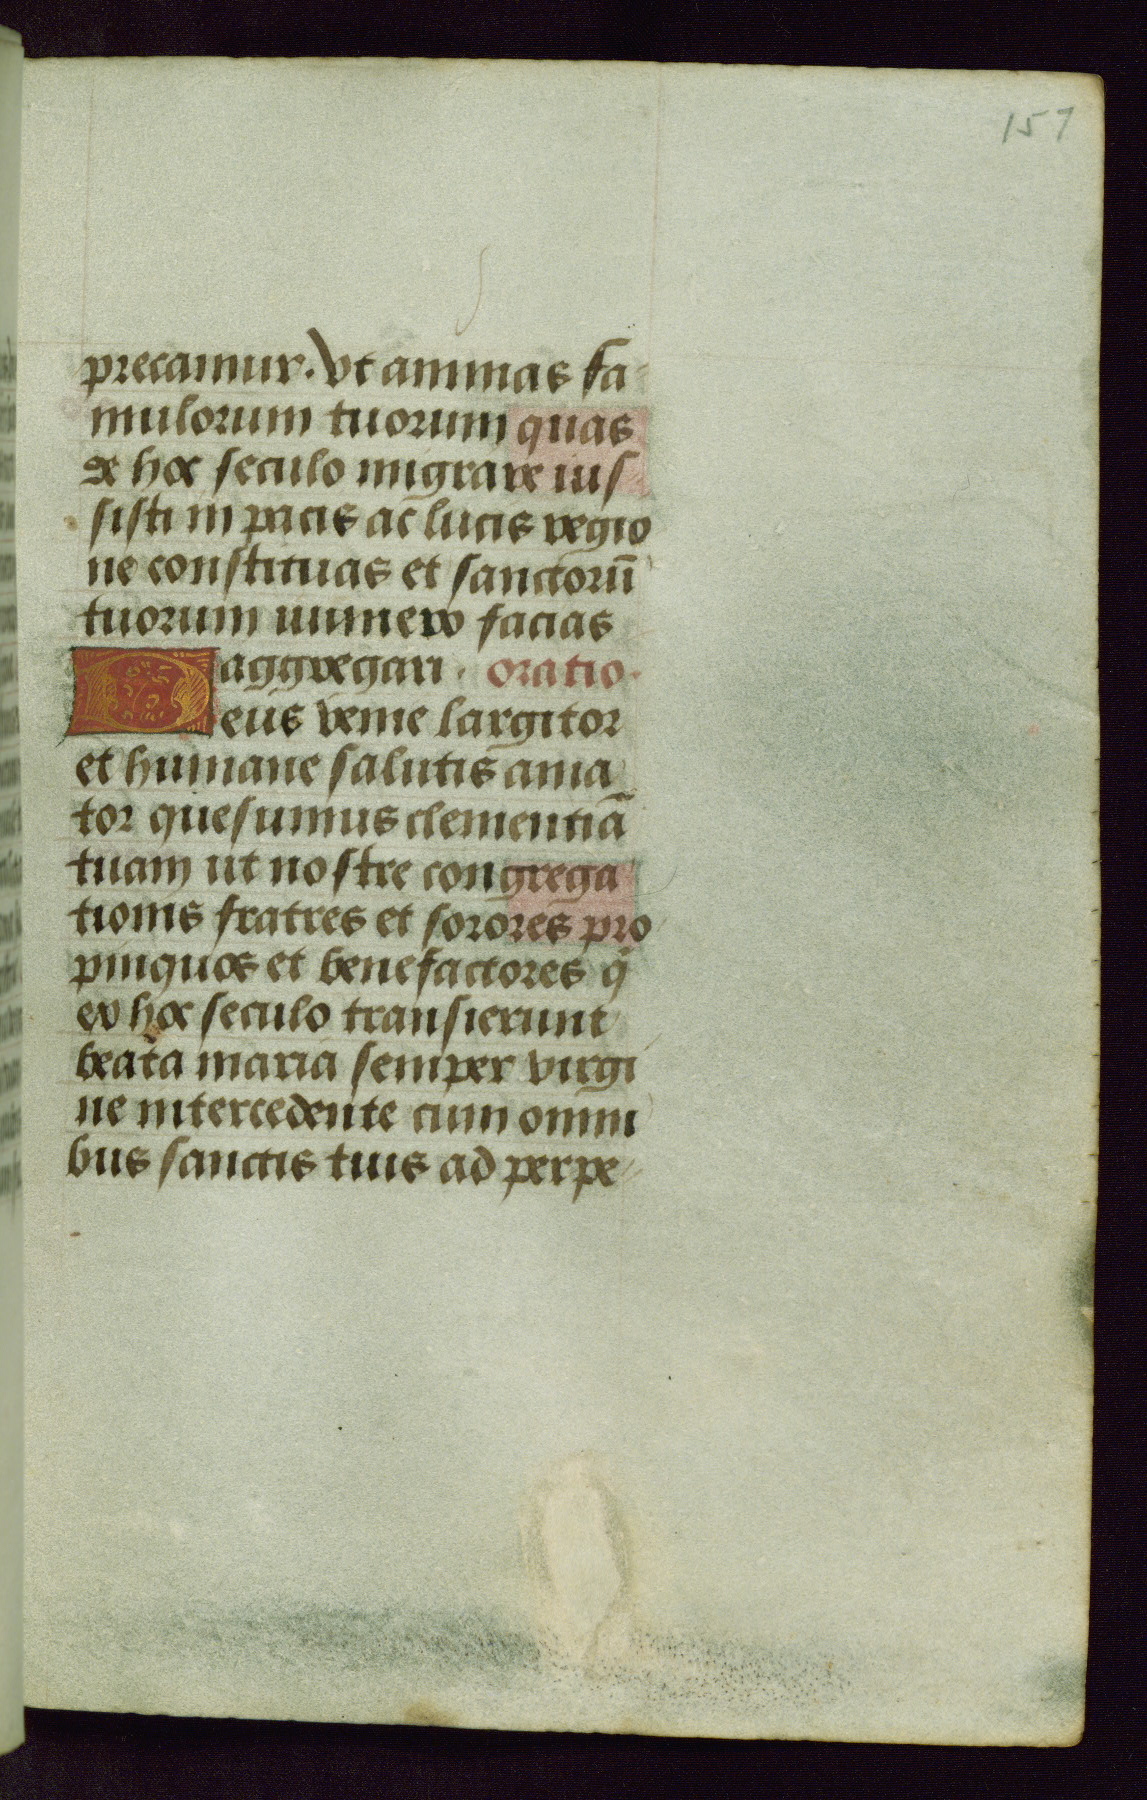 157
precamur. Vt animas fa-
mulorum tuorum quas
de hoc seculo migrare ius
sisti in pacis ac lucis regio
ne constituas et sanctorū
tuorum numero facias
aggregari. oratio.
Deus venie largitor
et humane salutis ama
tor quesumus clementiā
tuam ut nostre congrega
tionis fratres et sorores pro
pinquos et benefactores q̄
ex hoc seculo transierunt
beata maria semper virgi
ne intercedente cum omni
bus sanctis tuis ad perpe